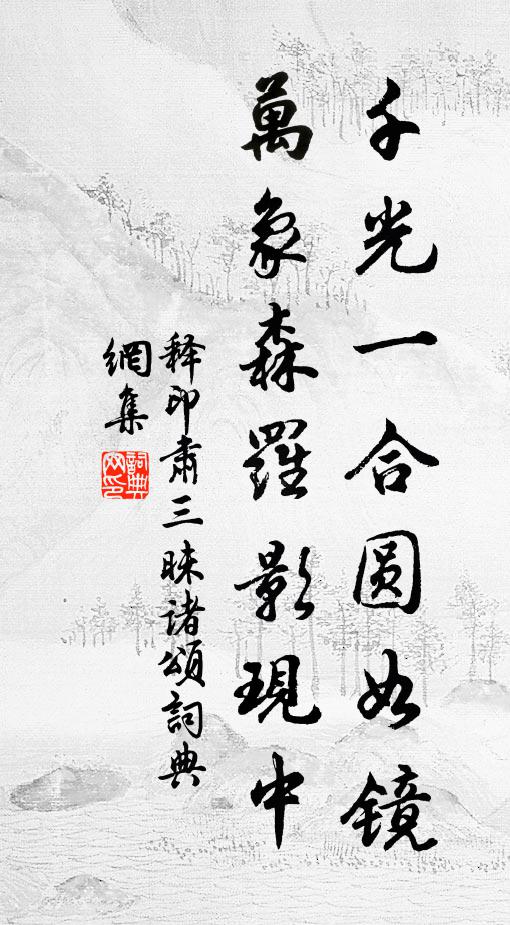 千光一合圆如镜
萬象森羅影現中
释印肅三昧诸頌詞典
網集
詞典網印